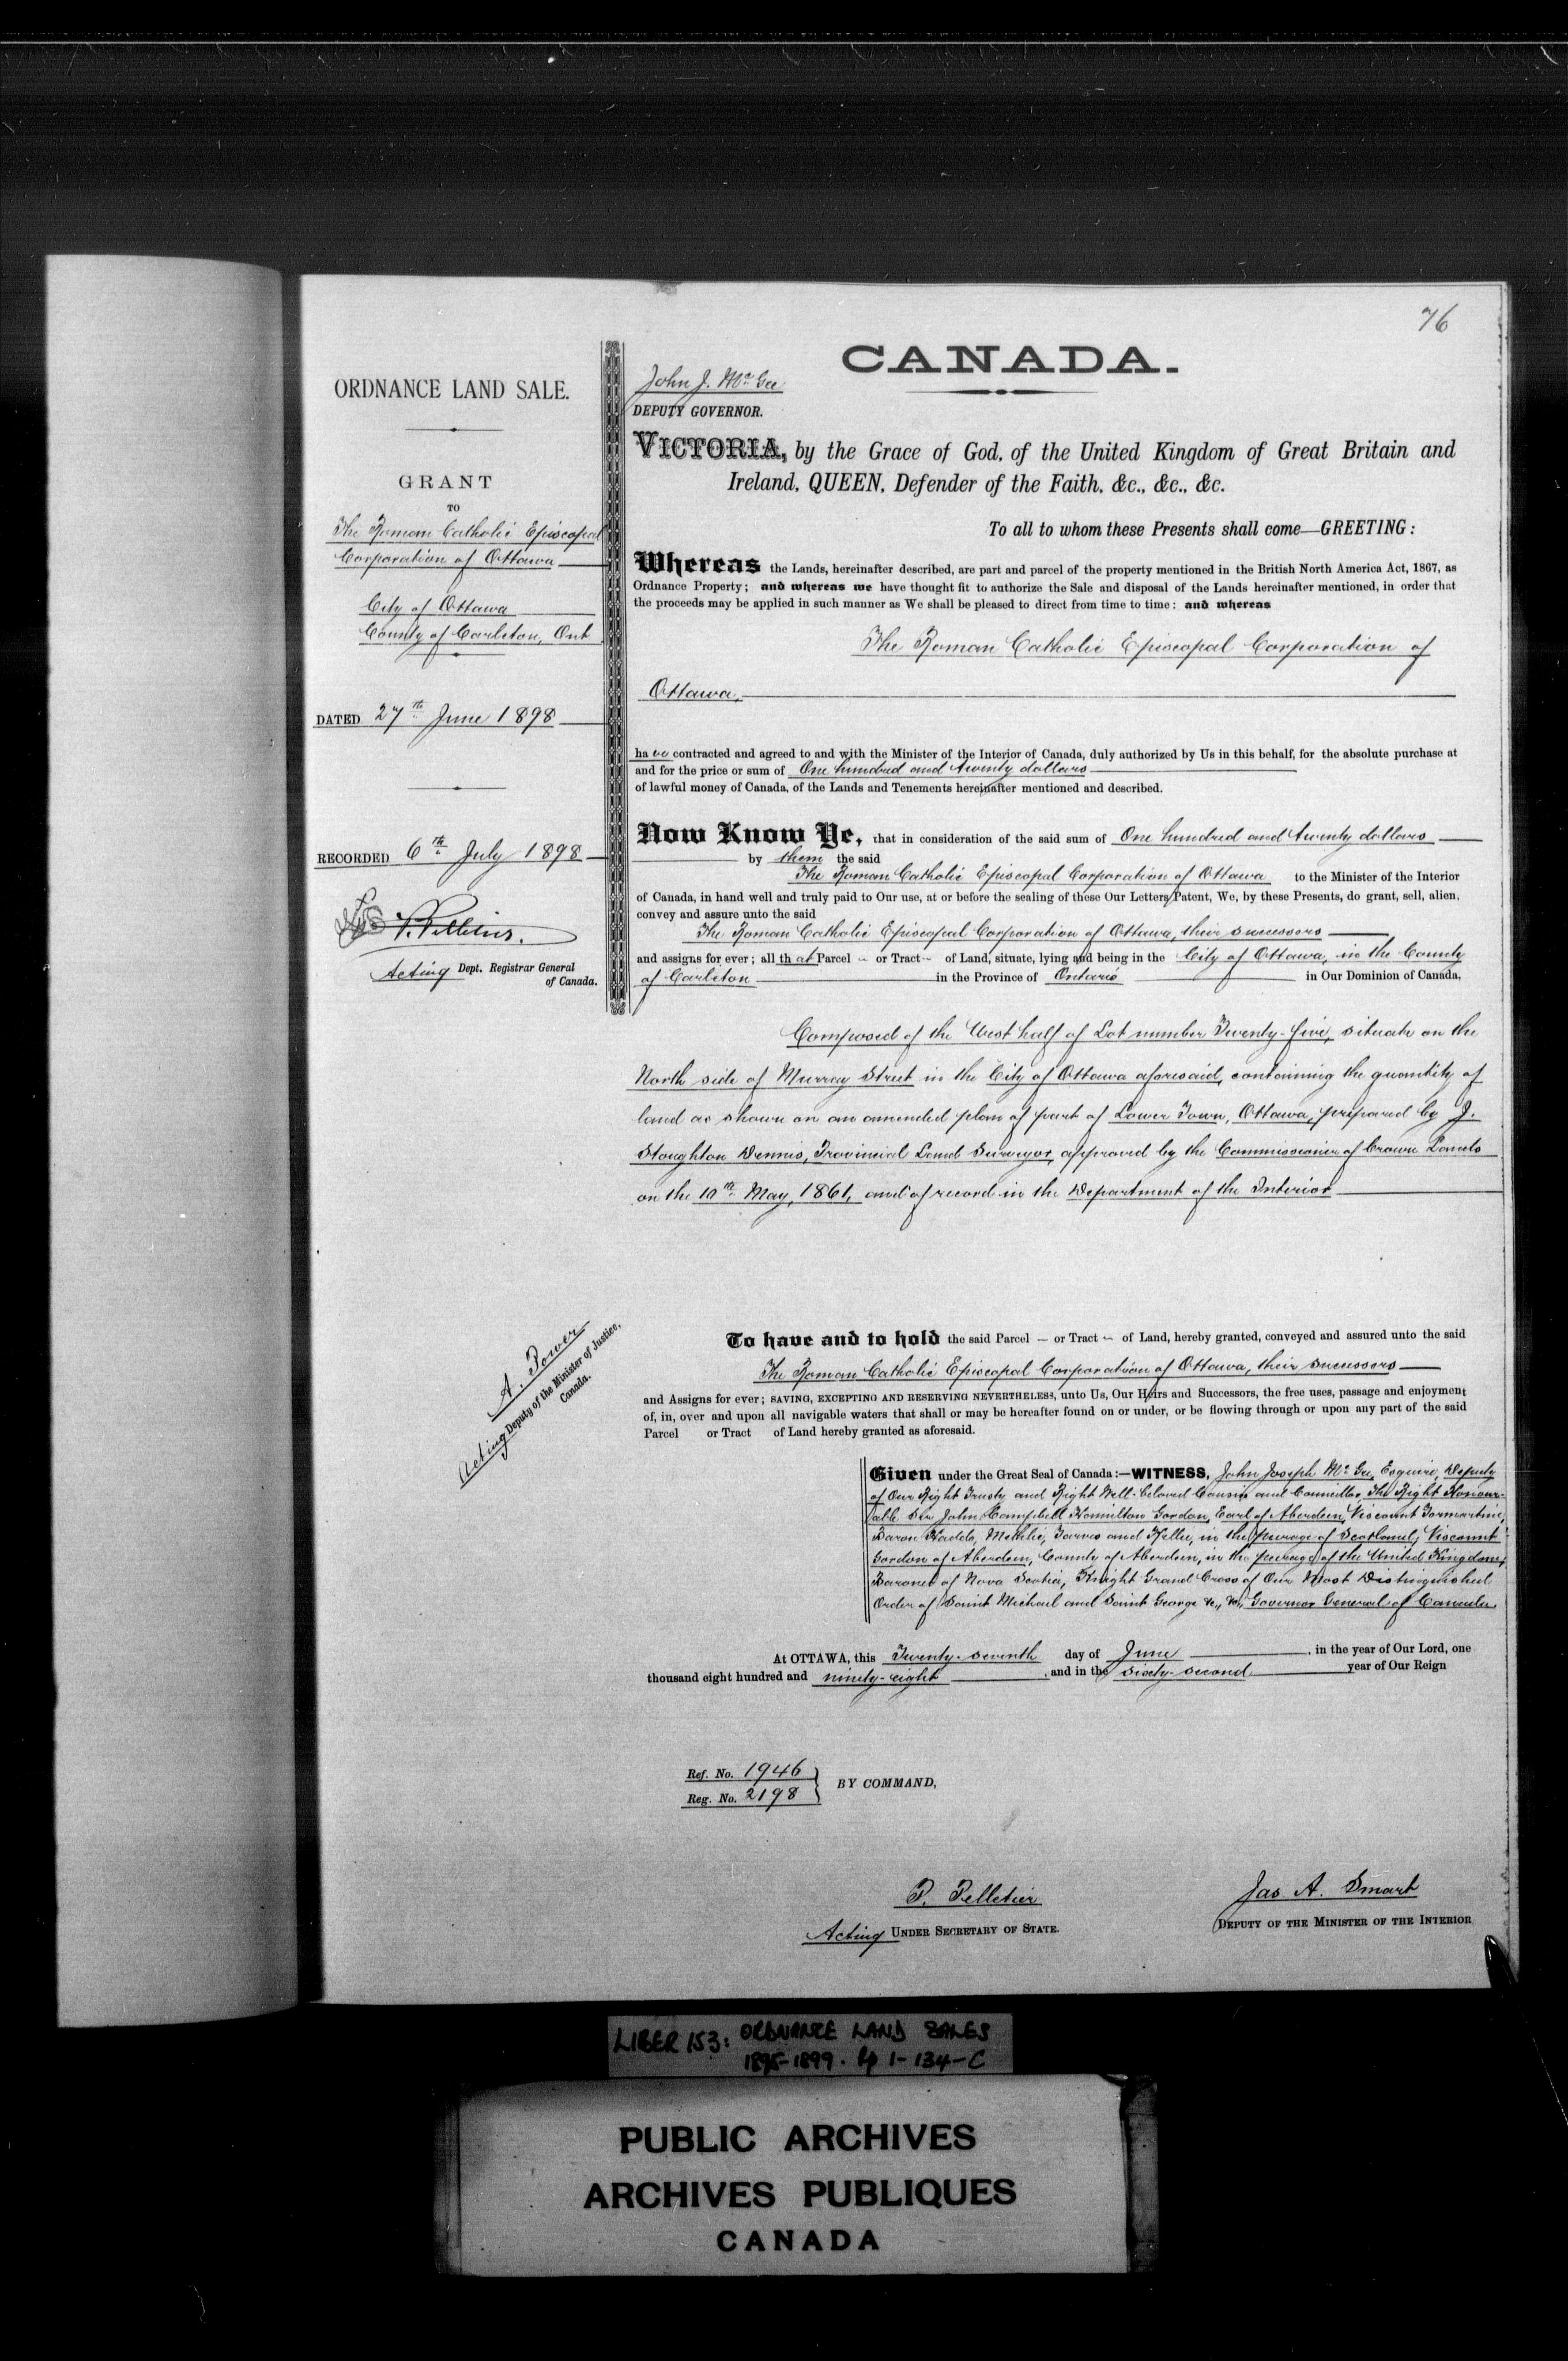 76
CANADA.
ORDNANCE LAND SALE.
GRANT
TO
The Roman Catholic Episcopal
Corporation of Ottawa
City of Ottawa
County of Carleton, Ont
DATED 27th June 1898
RECORDED 6th July 1898
P. Pelletier.
Acting Dept. Registrar General
of Canada.
John J. McGee
DEPUTY GOVERNOR.
VICTORIA, by the Grace of God, of the United Kingdom of Great Britain and
Ireland, QUEEN, Defender of the Faith, &c., &c., &c.
To all to whom these Presents shall come—GREETING:
Whereas the Lands, hereinafter described, are part and parcel of the property mentioned in the British North America Act, 1867, as
Ordnance Property; and whereas we have thought fit to authorize the Sale and disposal of the Lands hereinafter mentioned, in order that
the proceeds may be applied in such manner as We shall be pleased to direct from time to time: and whereas
The Roman Catholic Episcopal Corporation of
Ottawa,
have contracted and agreed to and with the Minister of the Interior of Canada, duly authorized by Us in this behalf, for the absolute purchase at
and for the price or sum of One hundred and twenty dollars
of lawful money of Canada, of the Lands and Tenements hereinafter mentioned and described.
Now Know Ye, that in consideration of the said sum of One hundred and twenty dollars
by them the said
The Roman Catholic Episcopal Corporation of Ottawa to the Minister of the Interior
of Canada, in hand well and truly paid to Our use, at or before the sealing of these Our Letters Patent, We, by these Presents, do grant, sell, alien,
convey and assure unto the said
The Roman Catholic Episcopal Corporation of Ottawa, their successors
and assigns for ever; all that Parcel or Tract of Land, situate, lying and being in the City of Ottawa, in the County
of Carleton in the Province of Ontario in Our Dominion of Canada,
Composed of the West half of Lot number Twenty-five, situate on the
North side of Murray Street in the City of Ottawa aforesaid, containing the quantity of
land as shown on an amended plan of part of Lower Town, Ottawa, prepared by J.
Stoughton Dennis, Provincial Land Surveyor, approved by the Commissioner of Crown Lands
on the 10th May, 1861, and of record in the Department of the Interior
To have and to hold the said Parcel — or Tract — of Land, hereby granted, conveyed and assured unto the said
The Roman Catholic Episcopal Corporation of Ottawa, their successors
and Assigns for ever; SAVING, EXCEPTING AND RESERVING NEVERTHELESS, unto Us, Our Heirs and Successors, the free uses, passage and enjoyment
of, in, over and upon all navigable waters that shall or may be hereafter found on or under, or be flowing through or upon any part of the said
Parcel or Tract of Land hereby granted as aforesaid.
A. Power
Acting Deputy of the Minister of Justice,
Canada.
Given under the Great Seal of Canada:—WITNESS, John Joseph McGee, Esquire, Deputy
of Our Right Trusty and Right Well-beloved Cousin and Councillor, The Right Honour-
able Sir John Campbell Hamilton Gordon, Earl of Aberdeen, Viscount Formartine,
Baron Haddo, Methlic, Tarves and Kellie, in the peerage of Scotland; Viscount
Gordon of Aberdeen, County of Aberdeen, in the peerage of the United Kingdom;
Baronet of Nova Scotia, Knight Grand Cross of Our Most Distinguished
Order of Saint Michael and Saint George &c., &c., Governor General of Canada.
At OTTAWA, this Twenty-seventh day of June, in the year of Our Lord, one
thousand eight hundred and ninety-eight, and in the sixty-second year of Our Reign
Ref. No. 1946
Reg. No. 2198
BY COMMAND,
P. Pelletier
Acting UNDER SECRETARY OF STATE.
Jas A. Smart
DEPUTY OF THE MINISTER OF THE INTERIOR
LIBER 153: ORDNANCE LAND SALES
1895-1899. Pp 1-134-C
PUBLIC ARCHIVES
ARCHIVES PUBLIQUES
CANADA